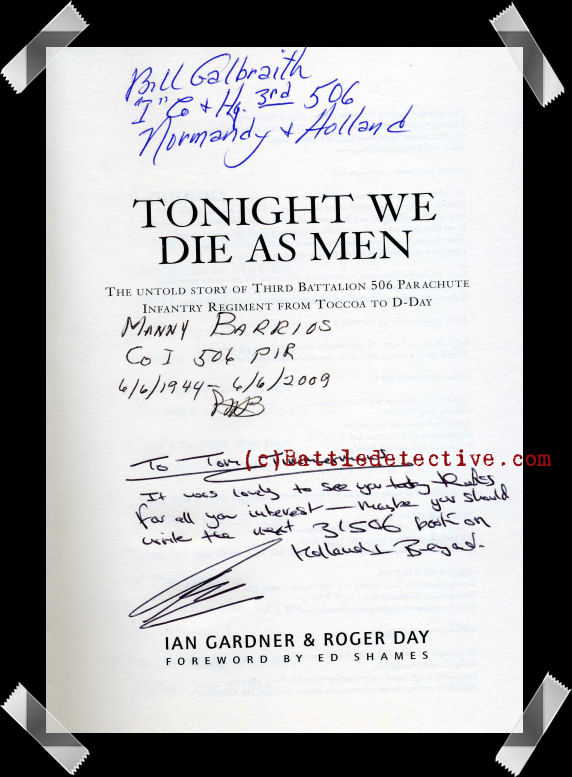 Bill Galbraith
"I" Co + Hq. 3rd 506
Normandy + Holland
TONIGHT WE
DIE AS MEN
THE UNTOLD STORY OF THIRD BATTALION 506 PARACHUTE
INFANTRY REGIMENT FROM TOCCOA TO D-DAY
MANNY BARRIOS
Co I 506 PIR
6/6/1944 - 6/6/2009
To Tom
(c)Battledetective.com
It was lovely to see you today
for all you interest — maybe you should
write the next 3/506 book on
Holland & Beyond.
IAN GARDNER & ROGER DAY
FOREWORD BY ED SHAMES